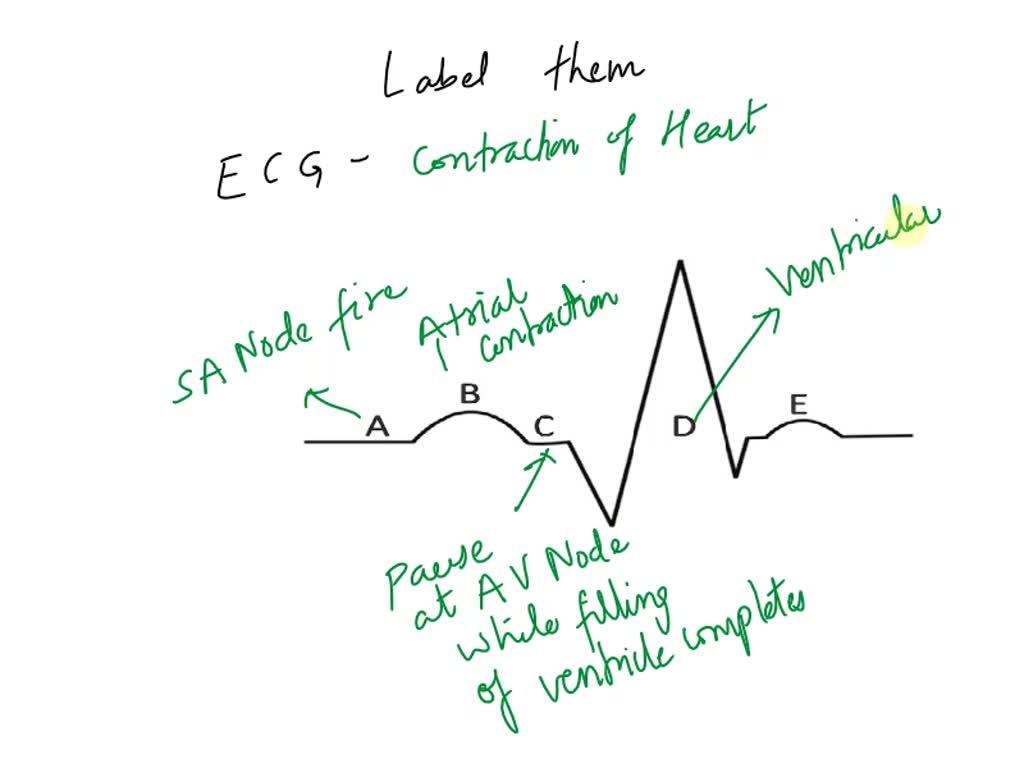 Label them
ECG - Contraction of Heart
Ventricular
SA Node fire
Atrial
contraction
B
A
C
D
E
Pause
at AV Node
while filling
of ventricle completes